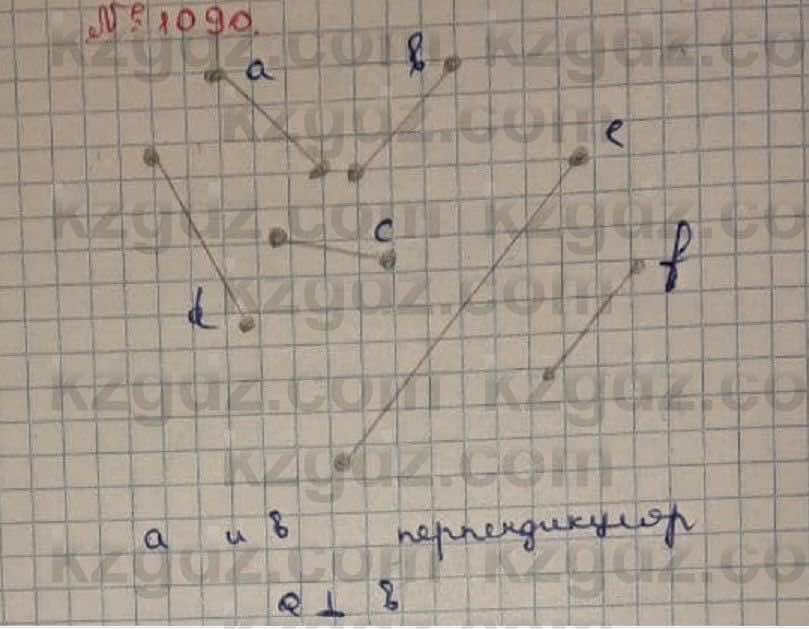 № 1090.
a
в
e
c
f
k
a и в перпендикуляр
a ⊥ в
kzgdz.com